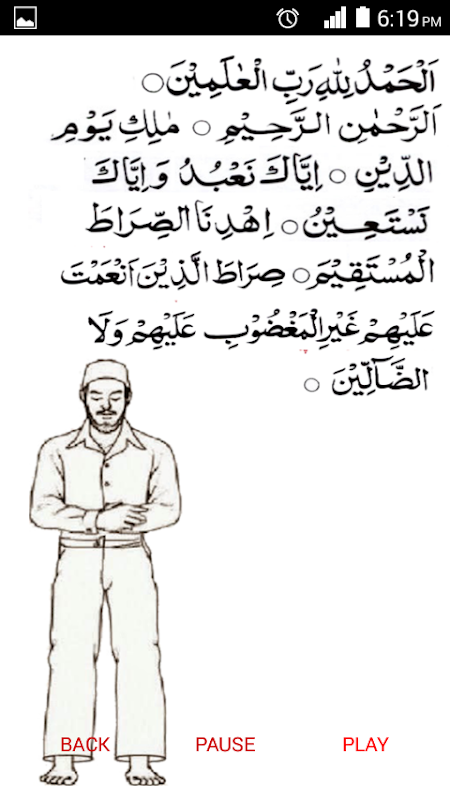 6:19 PM
اَلْحَمْدُ لِلّٰهِ رَبِّ الْعٰلَمِيْنَ ○
الرَّحْمٰنِ الرَّحِيْمِ ○ مٰلِكِ يَوْمِ
الدِّيْنِ ○ اِيَّاكَ نَعْبُدُ وَ اِيَّاكَ
نَسْتَعِيْنُ ○ اِهْدِنَا الصِّرَاطَ
الْمُسْتَقِيْمَ ○ صِرَاطَ الَّذِيْنَ اَنْعَمْتَ
عَلَيْهِمْ غَيْرِ الْمَغْضُوْبِ عَلَيْهِمْ وَلَا
الضَّآلِّيْنَ ○
BACK PAUSE PLAY